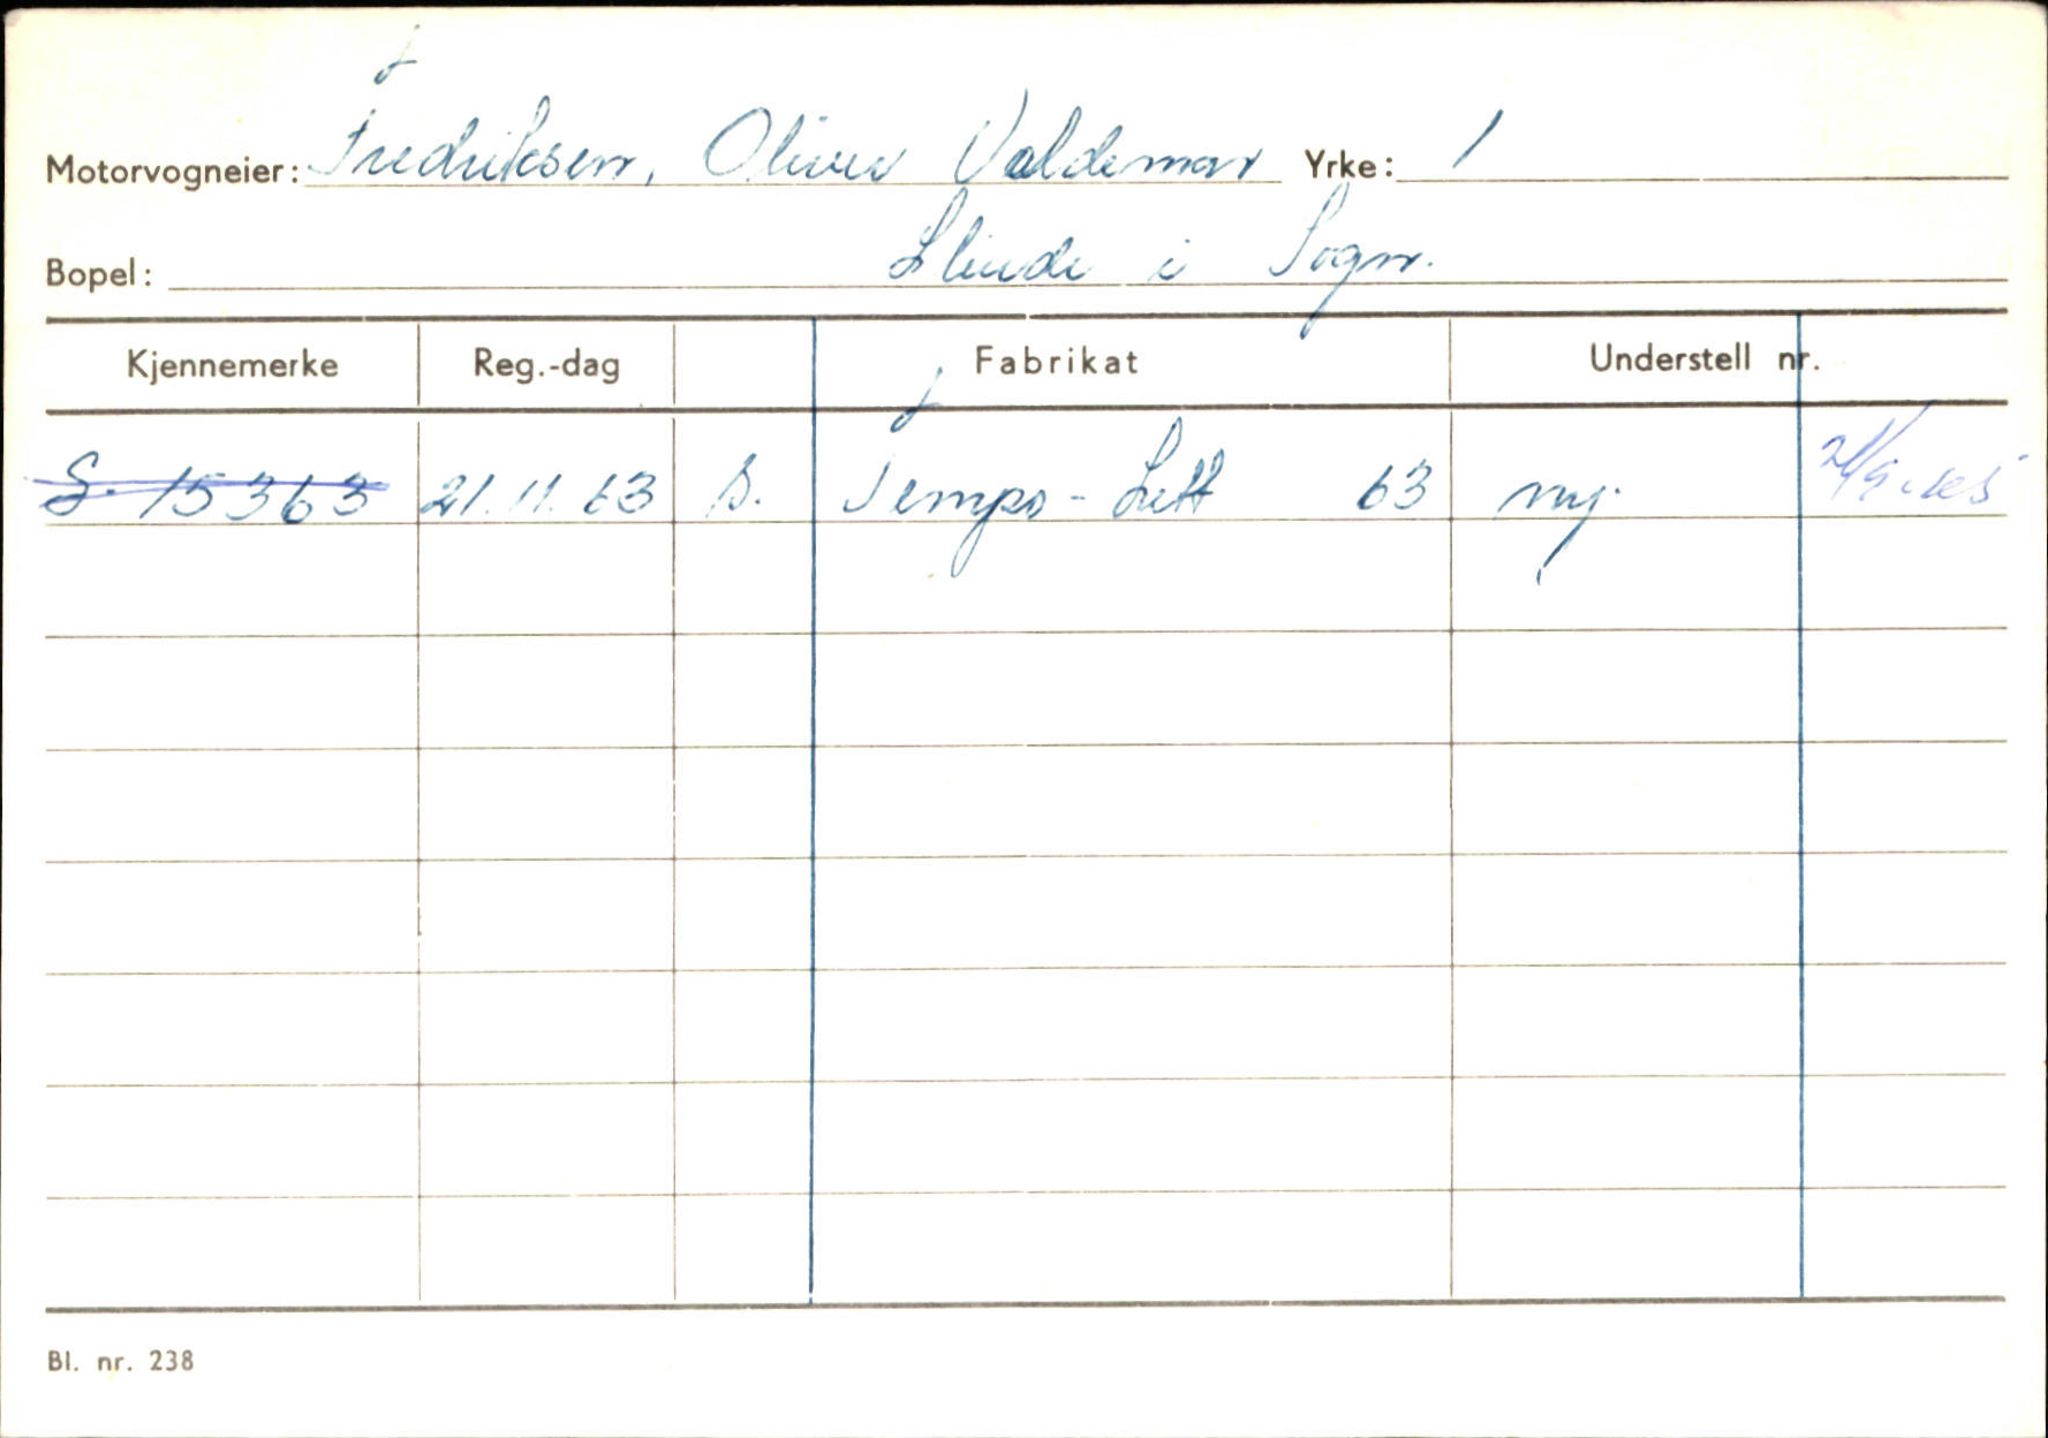 Motorvogneier: Fredriksen, Oliver Valdemar Yrke: 1
Bopel: Slinde i Sogn.
Kjennemerke Reg.-dag Fabrikat Understell nr.
S. 15363 21.11.63 B. Tempo-Lett 63 ny.
Bl. nr. 238